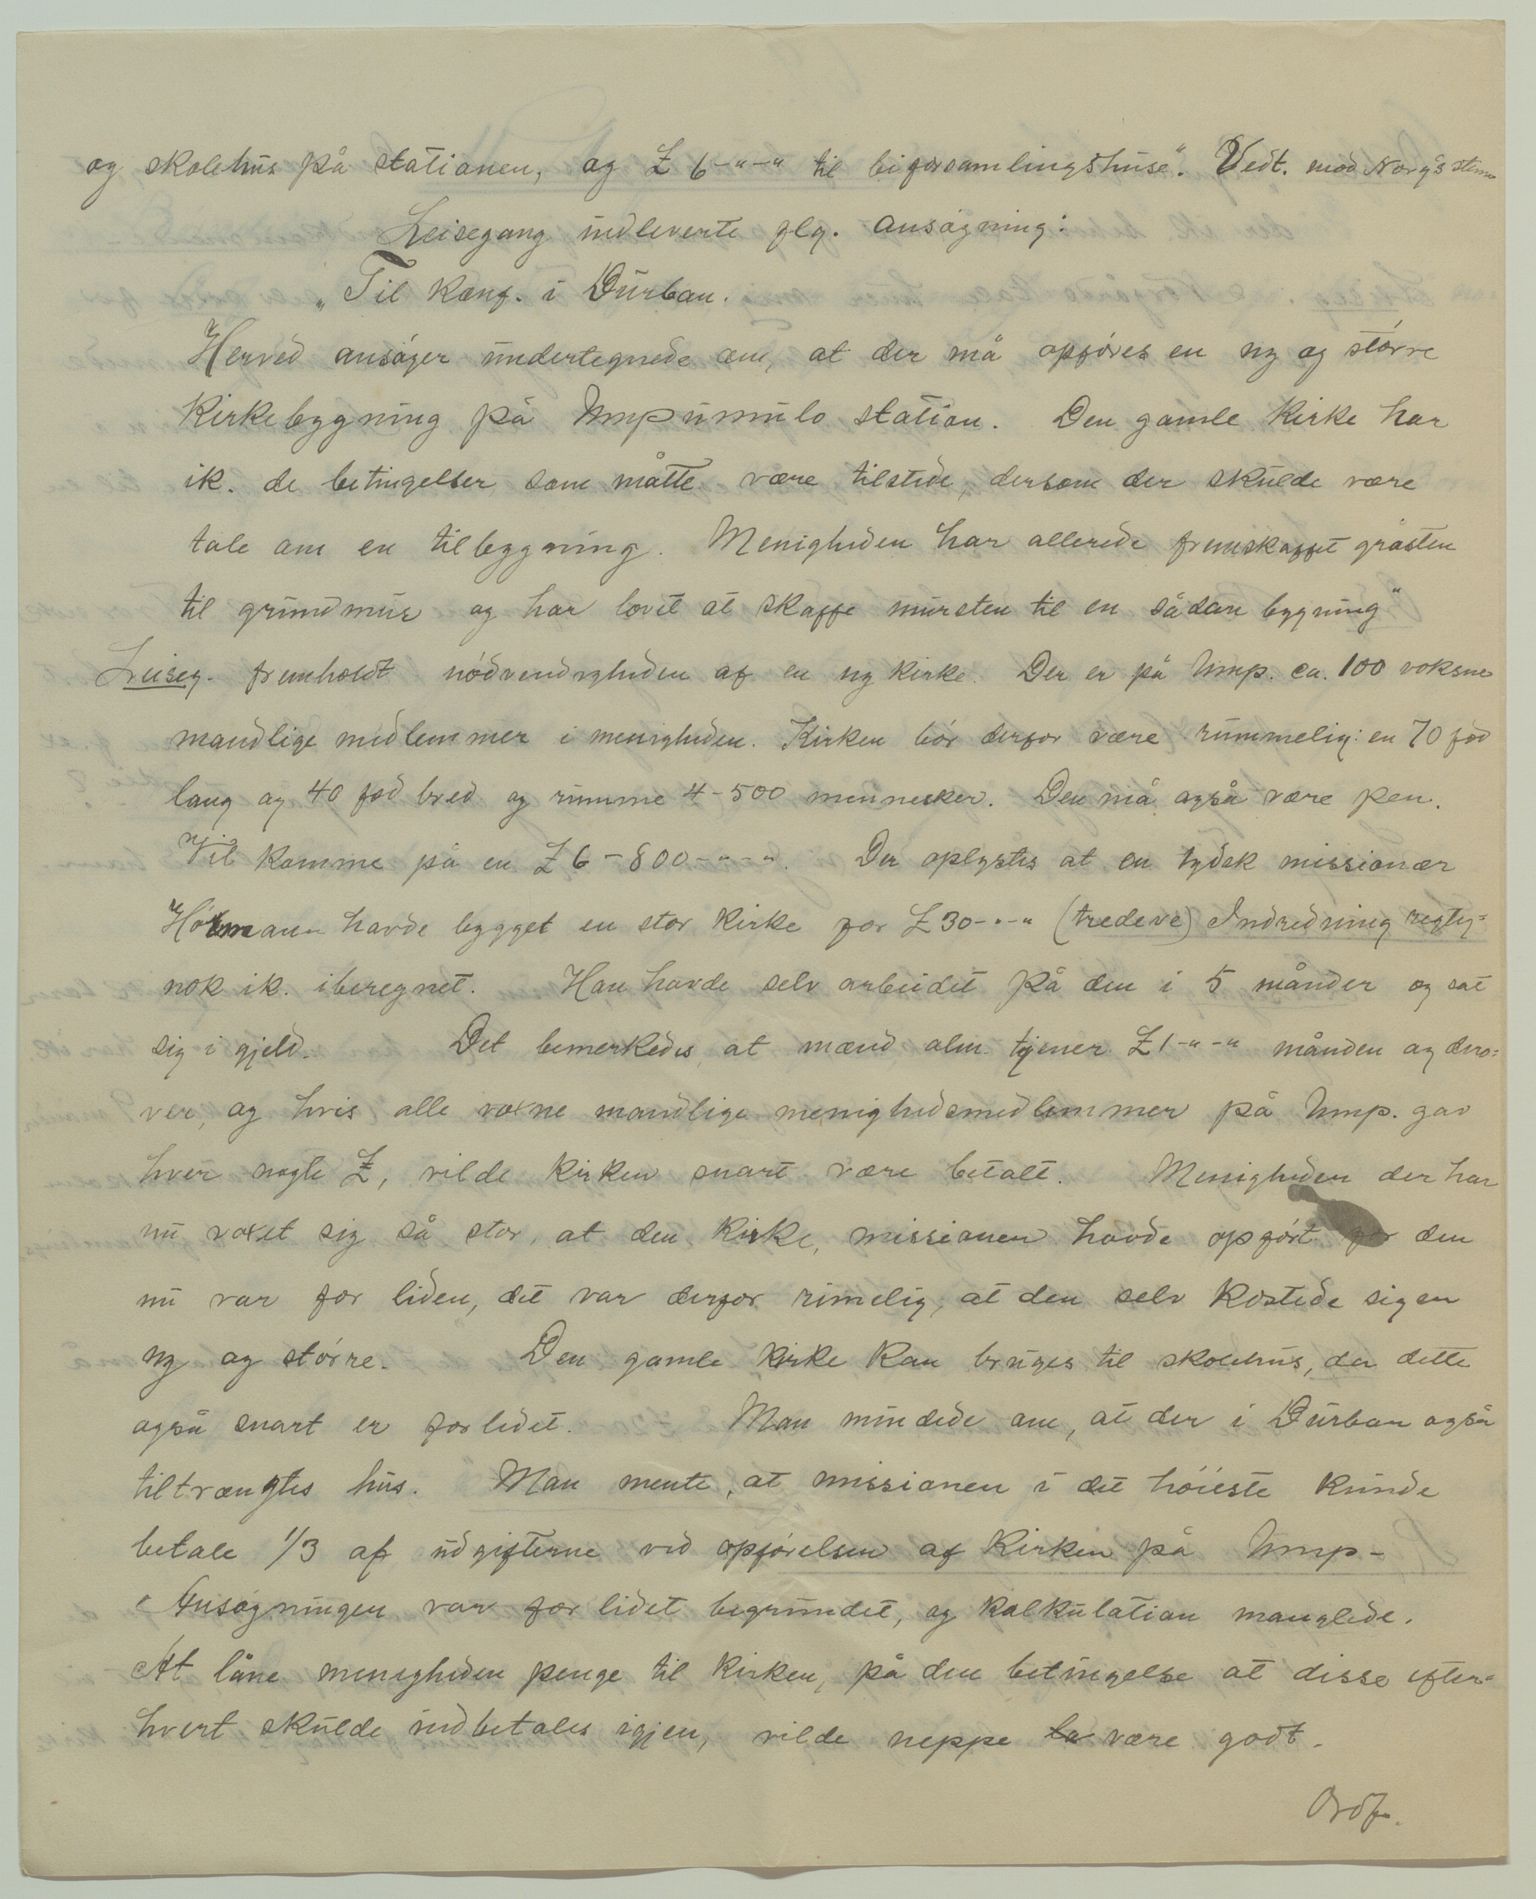 og skolehus på stationen, og £ 6-"-" til biforsamlingshuse". Vedt. mod Norg's stem
Leisegang indleverte flg. ansøgning:
"Til Konf. i Durban.
Herved ansøger undertegnede om, at der må opføres en ny og større
kirkebygning på Umpumulo station. Den gamle kirke har
ik. de betingelser som måtte være tilstede, dersom der skulde være
tale om en tilbygning. Menigheden har allerede fremskaffet gråsten
til grundmur og har lovet at skaffe mursten til en sådan bygning"
Leiseg. fremholdt nødvendigheden af en ny kirke. Der er på Ump. ca. 100 voksne
mandlige medlemmer i menigheden. Kirken bør derfor være rummelig: en 70 fod
lang og 40 fod bred og rumme 4-500 mennesker. Den må også være pen.
Vil komme på en £ 6-800-"-". Der oplystes at en tydsk missionær
Hörmann havde bygget en stor kirke for £30-"-" (tredeve) Indredning regty=
nok ik. iberegnet. Han havde selv arbeidet på den i 5 måneder og sat
sig i gjeld. Det bemerkedes, at mænd alm. tjener £1-"-" måneden og dero=
ver, og hvis alle voxne mandlige menighedsmedlemmer på Ump. gav
hver nogle £, vilde kirken snart være betalt. Menigheden der har
nu voxet sig så stor, at den kirke, missionen havde opført for den
nu var for liden, det var derfor rimelig, at den selv kostede sig en
ny og større. Den gamle kirke kan bruges til skolehus, da dette
også snart er for lidet. Man mindede om, at der i Durban også
tiltrængtes hus. Man mente, at missionen i det høieste kunde
betale 1/3 af udgifterne ved opførelsen af kirken på Ump-
Ansøgningen var for lidet begrundet, og kalkulation manglede.
At låne menigheden penge til kirken, på den betingelse at disse efter=
hvert skulde indbetales igjen, vilde neppe være godt.
Ordf.